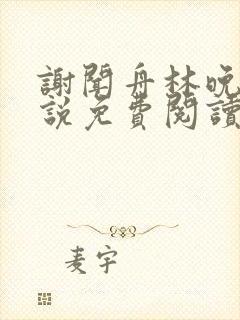 謝聞舟林晚
說免費閱讀
麦宇